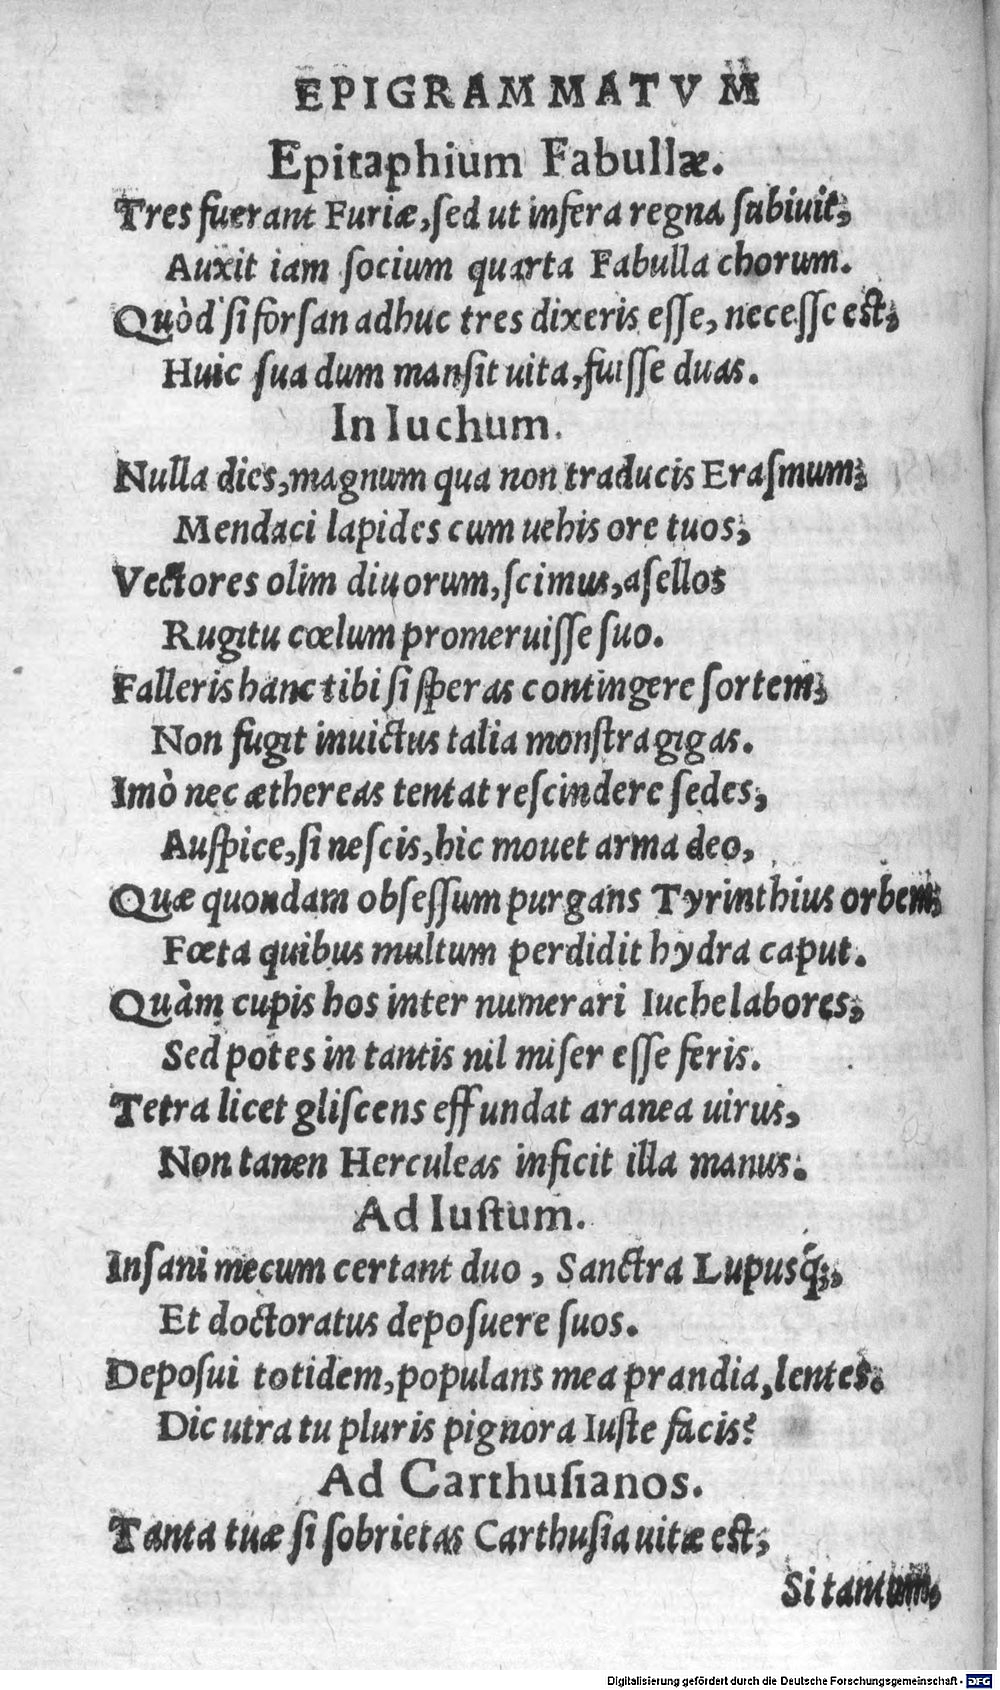 EPIGRAMMATVM
Epitaphium Fabullæ.
Tres fuerant Furiæ, ſed ut infera regna ſubiuit,
Auxit iam ſocium quarta Fabulla chorum.
Quòd ſi forſan adhuc tres dixeris eſſe, neceſſe eſt,
Huic ſua dum manſit uita, fuiſſe duas.
In Iuchum.
Nulla dies, magnum qua non traducis Eraſmum;
Mendaci lapides cum uehis ore tuos;
Vectores olim diuorum, ſcimus, aſellos
Rugitu cœlum promeruiſſe ſuo.
Falleris hanc tibi ſi ſperas contingere ſortem;
Non fugit inuictus talia monſtra gigas.
Imò nec æthereas tentat reſcindere ſedes,
Auſpice, ſi neſcis, hic mouet arma deo,
Quæ quondam obſeſſum purgans Tyrinthius orbem;
Fœta quibus multum perdidit hydra caput.
Quàm cupis hos inter numerari Iuche labores,
Sed potes in tantis nil miſer eſſe feris.
Tetra licet gliſcens effundat aranea uirus,
Non tanen Herculeas inficit illa manus.
Ad Iuſtum.
Inſani mecum certant duo, Sanctra Lupusq́;,
Et doctoratus depoſuere ſuos.
Depoſui totidem, populans mea prandia, lentes.
Dic utra tu pluris pignora Iuſte facis?
Ad Carthuſianos.
Tanta tuæ ſi ſobrietas Carthuſia uitæ eſt,
Si tantum,
Digitalisierung gefördert durch die Deutsche Forschungsgemeinschaft - DFG